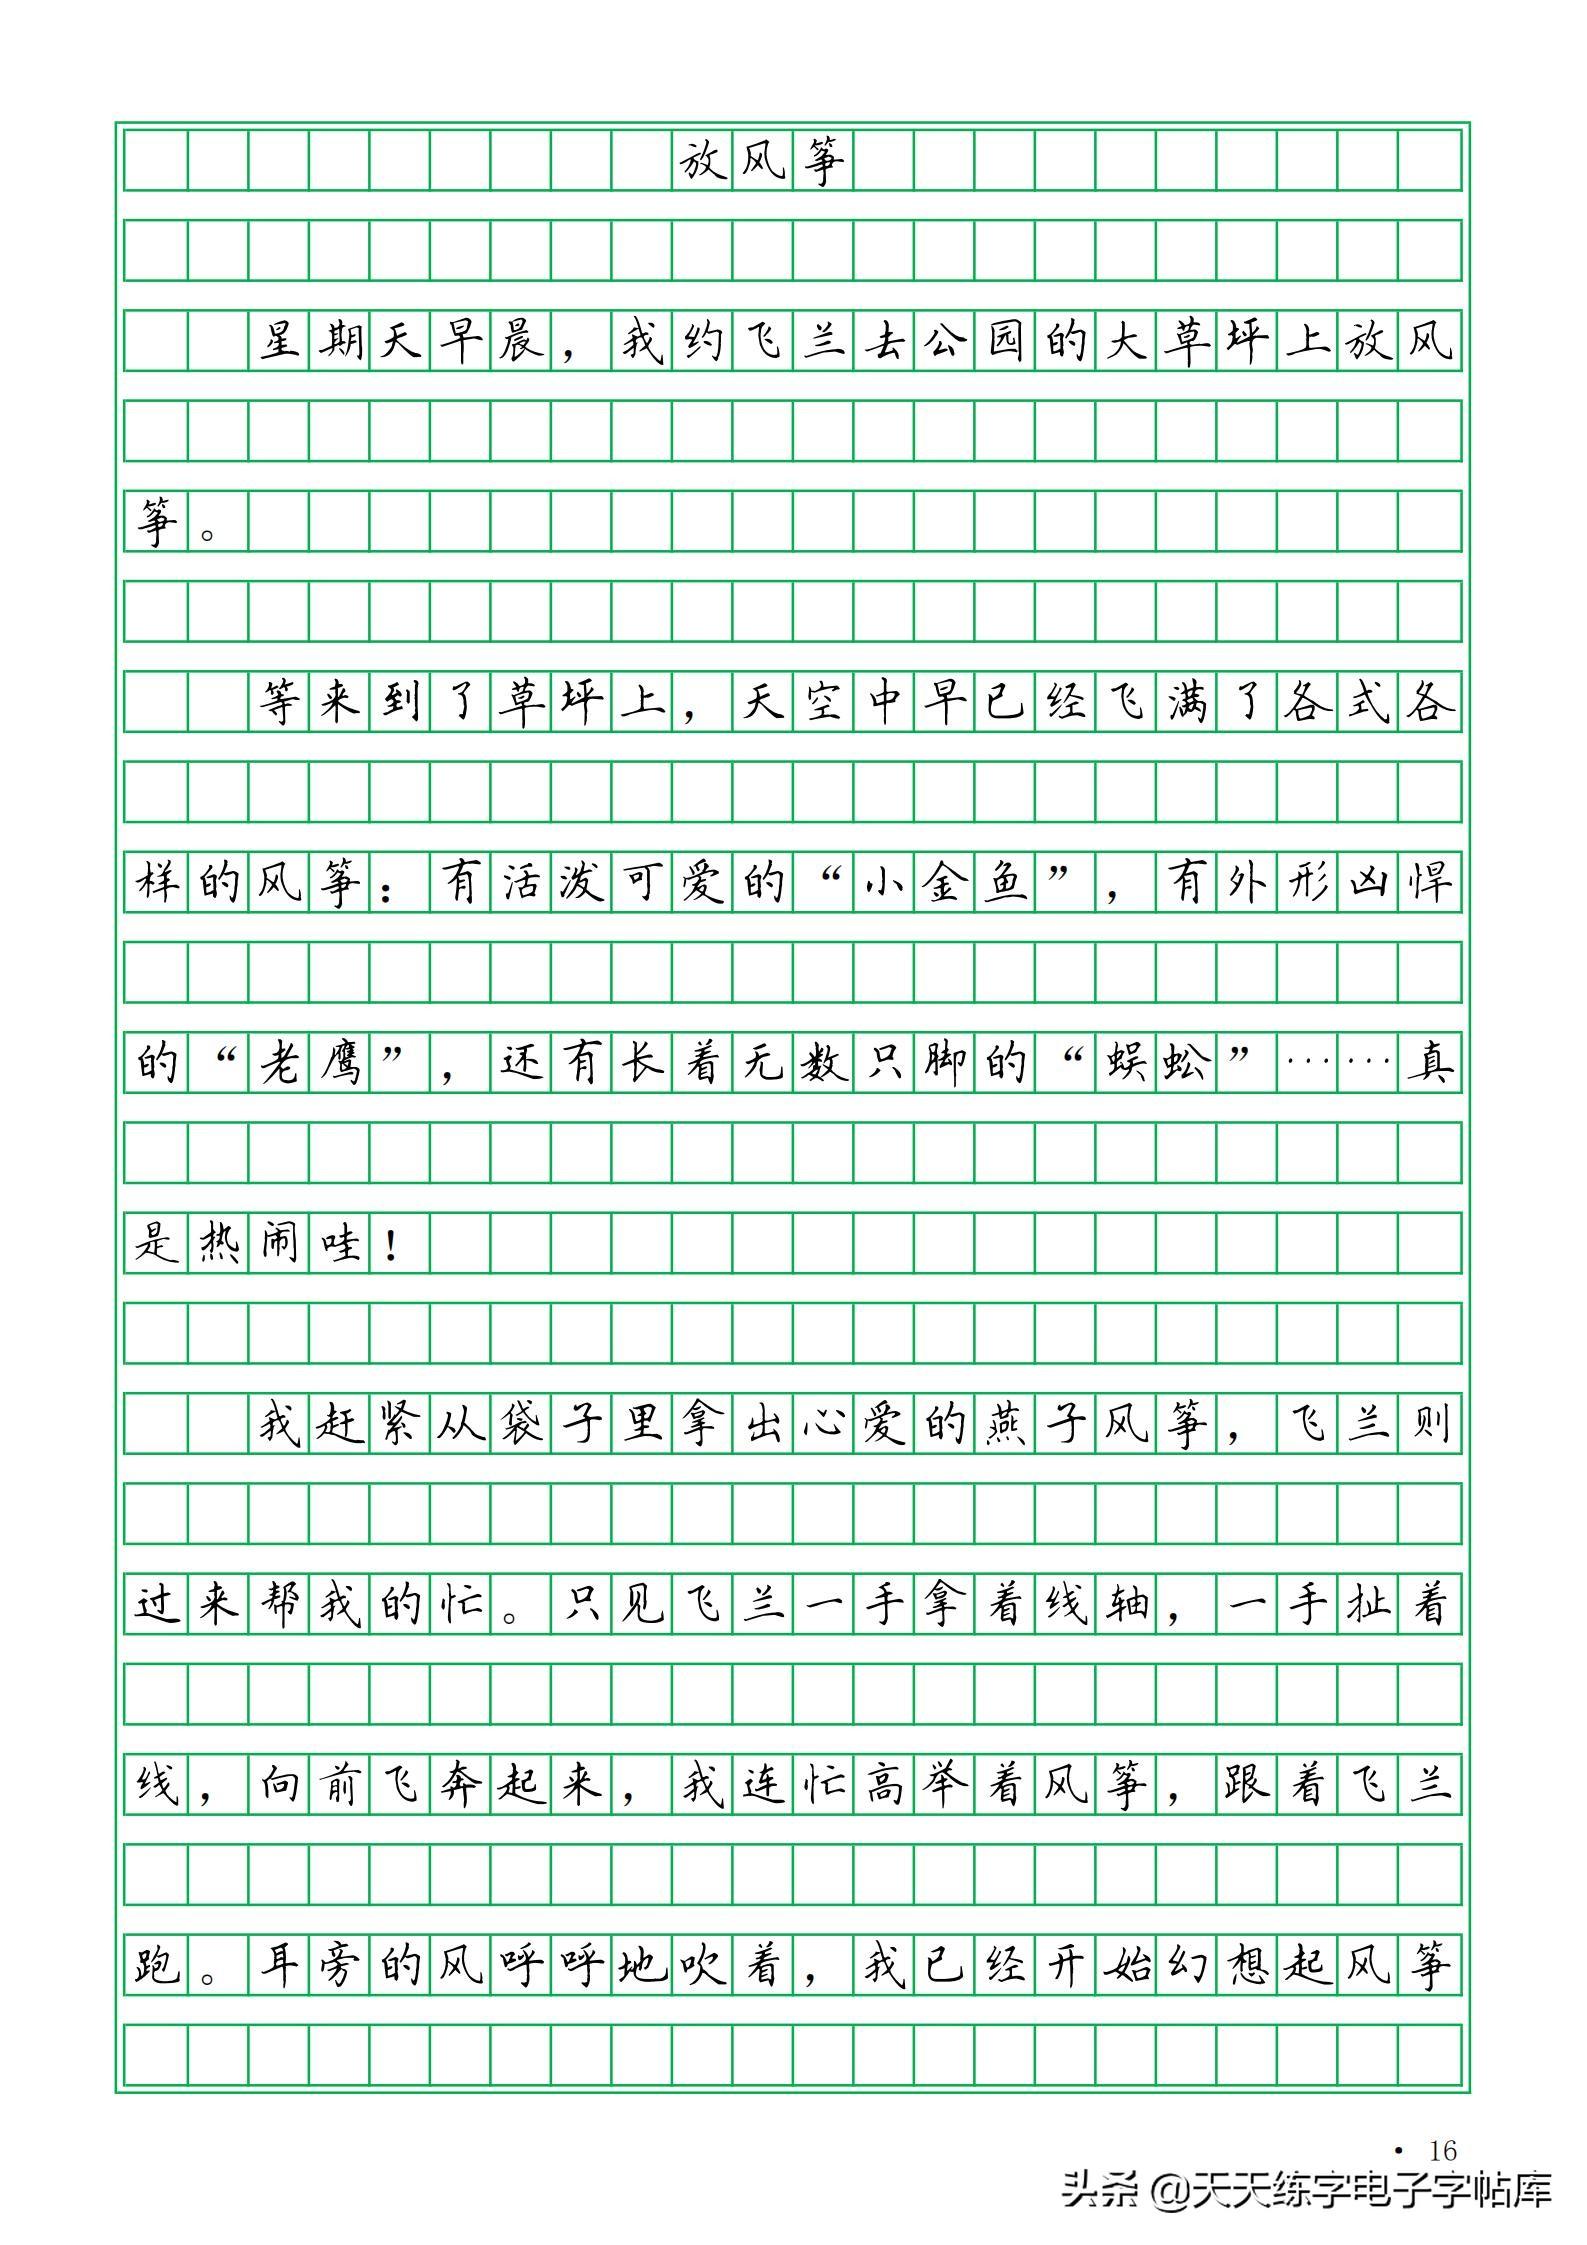 放风筝
星期天早晨，我约飞兰去公园的大草坪上放风
筝。
等来到了草坪上，天空中早已经飞满了各式各
样的风筝：有活泼可爱的“小金鱼”，有外形凶悍
的“老鹰”，还有长着无数只脚的“蜈蚣”……真
是热闹哇！
我赶紧从袋子里拿出心爱的燕子风筝，飞兰则
过来帮我的忙。只见飞兰一手拿着线轴，一手扯着
线，向前飞奔起来，我连忙高举着风筝，跟着飞兰
跑。耳旁的风呼呼地吹着，我已经开始幻想起风筝
• 16
头条 @天天练字电子字帖库